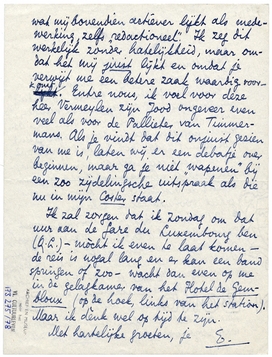 wat mij bovendien actiever lijkt als mede-
werking, zelfs „redactioneel". Ik zeg dit
werkelijk zonder hatelijkheid, maar om-
dat het mij juist lijkt en omdat je
verwijt me een betere zaak waardig voor-
komt. Entre nous, ik voel voor deze
heer Vermeylen zijn Jood ongeveer even
veel als voor de Pallieter van Timmer-
mans. Als je vindt dat dit onjuist gezien
van me is, laten wij er een debatje over
beginnen, maar ga je niet „wapenen" bij
een zoo zijdelingsche uitspraak als die
nu in mijn Coster staat.
Ik zal zorgen dat ik Zondag om dat
uur aan de Gare du Luxembourg ben
(Q.L.) — mòcht ik even te laat komen —
de reis is nogal lang en er kan een band
springen of zoo — wacht dan even op me
in de gelagkamer van het Hotel de Gem-
bloux (op de hoek, links van het station).
Maar ik denk wel op tijd te zijn.
Met hartelijke groeten, je E.